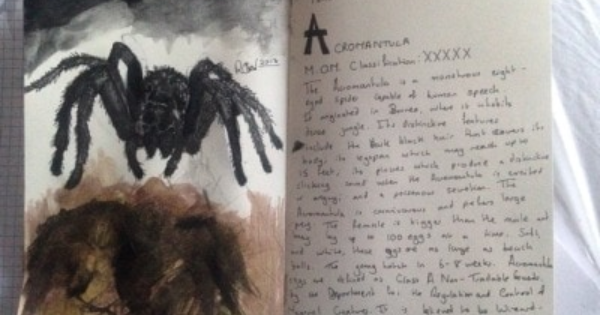 ACROMANTULA
M.O.M. Classification: XXXXX
The Acromantula is a monstrous eight-
eyed spider capable of human speech.
It originated in Borneo, where it inhabits
dense jungle. Its distinctive features
include the thick black hair that covers its
body; its legspan which may reach up to
15 feet; its pincers which produce a distinctive
clicking sound when the Acromantula is excited
or angry; and a poisonous secretion. The
Acromantula is carnivorous and prefers large
prey. The female is bigger than the male and
may lay up to 100 eggs at a time. Soft
and white, these eggs are as large as beach
balls. The young hatch in 6-8 weeks. Acromantula
eggs are defined as Class A Non-Tradeable Goods
by the Department for the Regulation and Control of
Magical Creatures. It is believed to be Wizard-